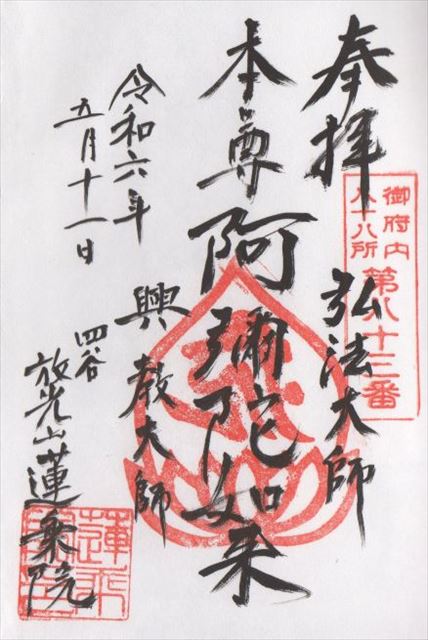 奉拝
御府内
八十八所
第八十三番
弘法大師
本尊阿彌陀如来
興教大師
令和六年
五月十一日
四谷
放光山蓮乗院